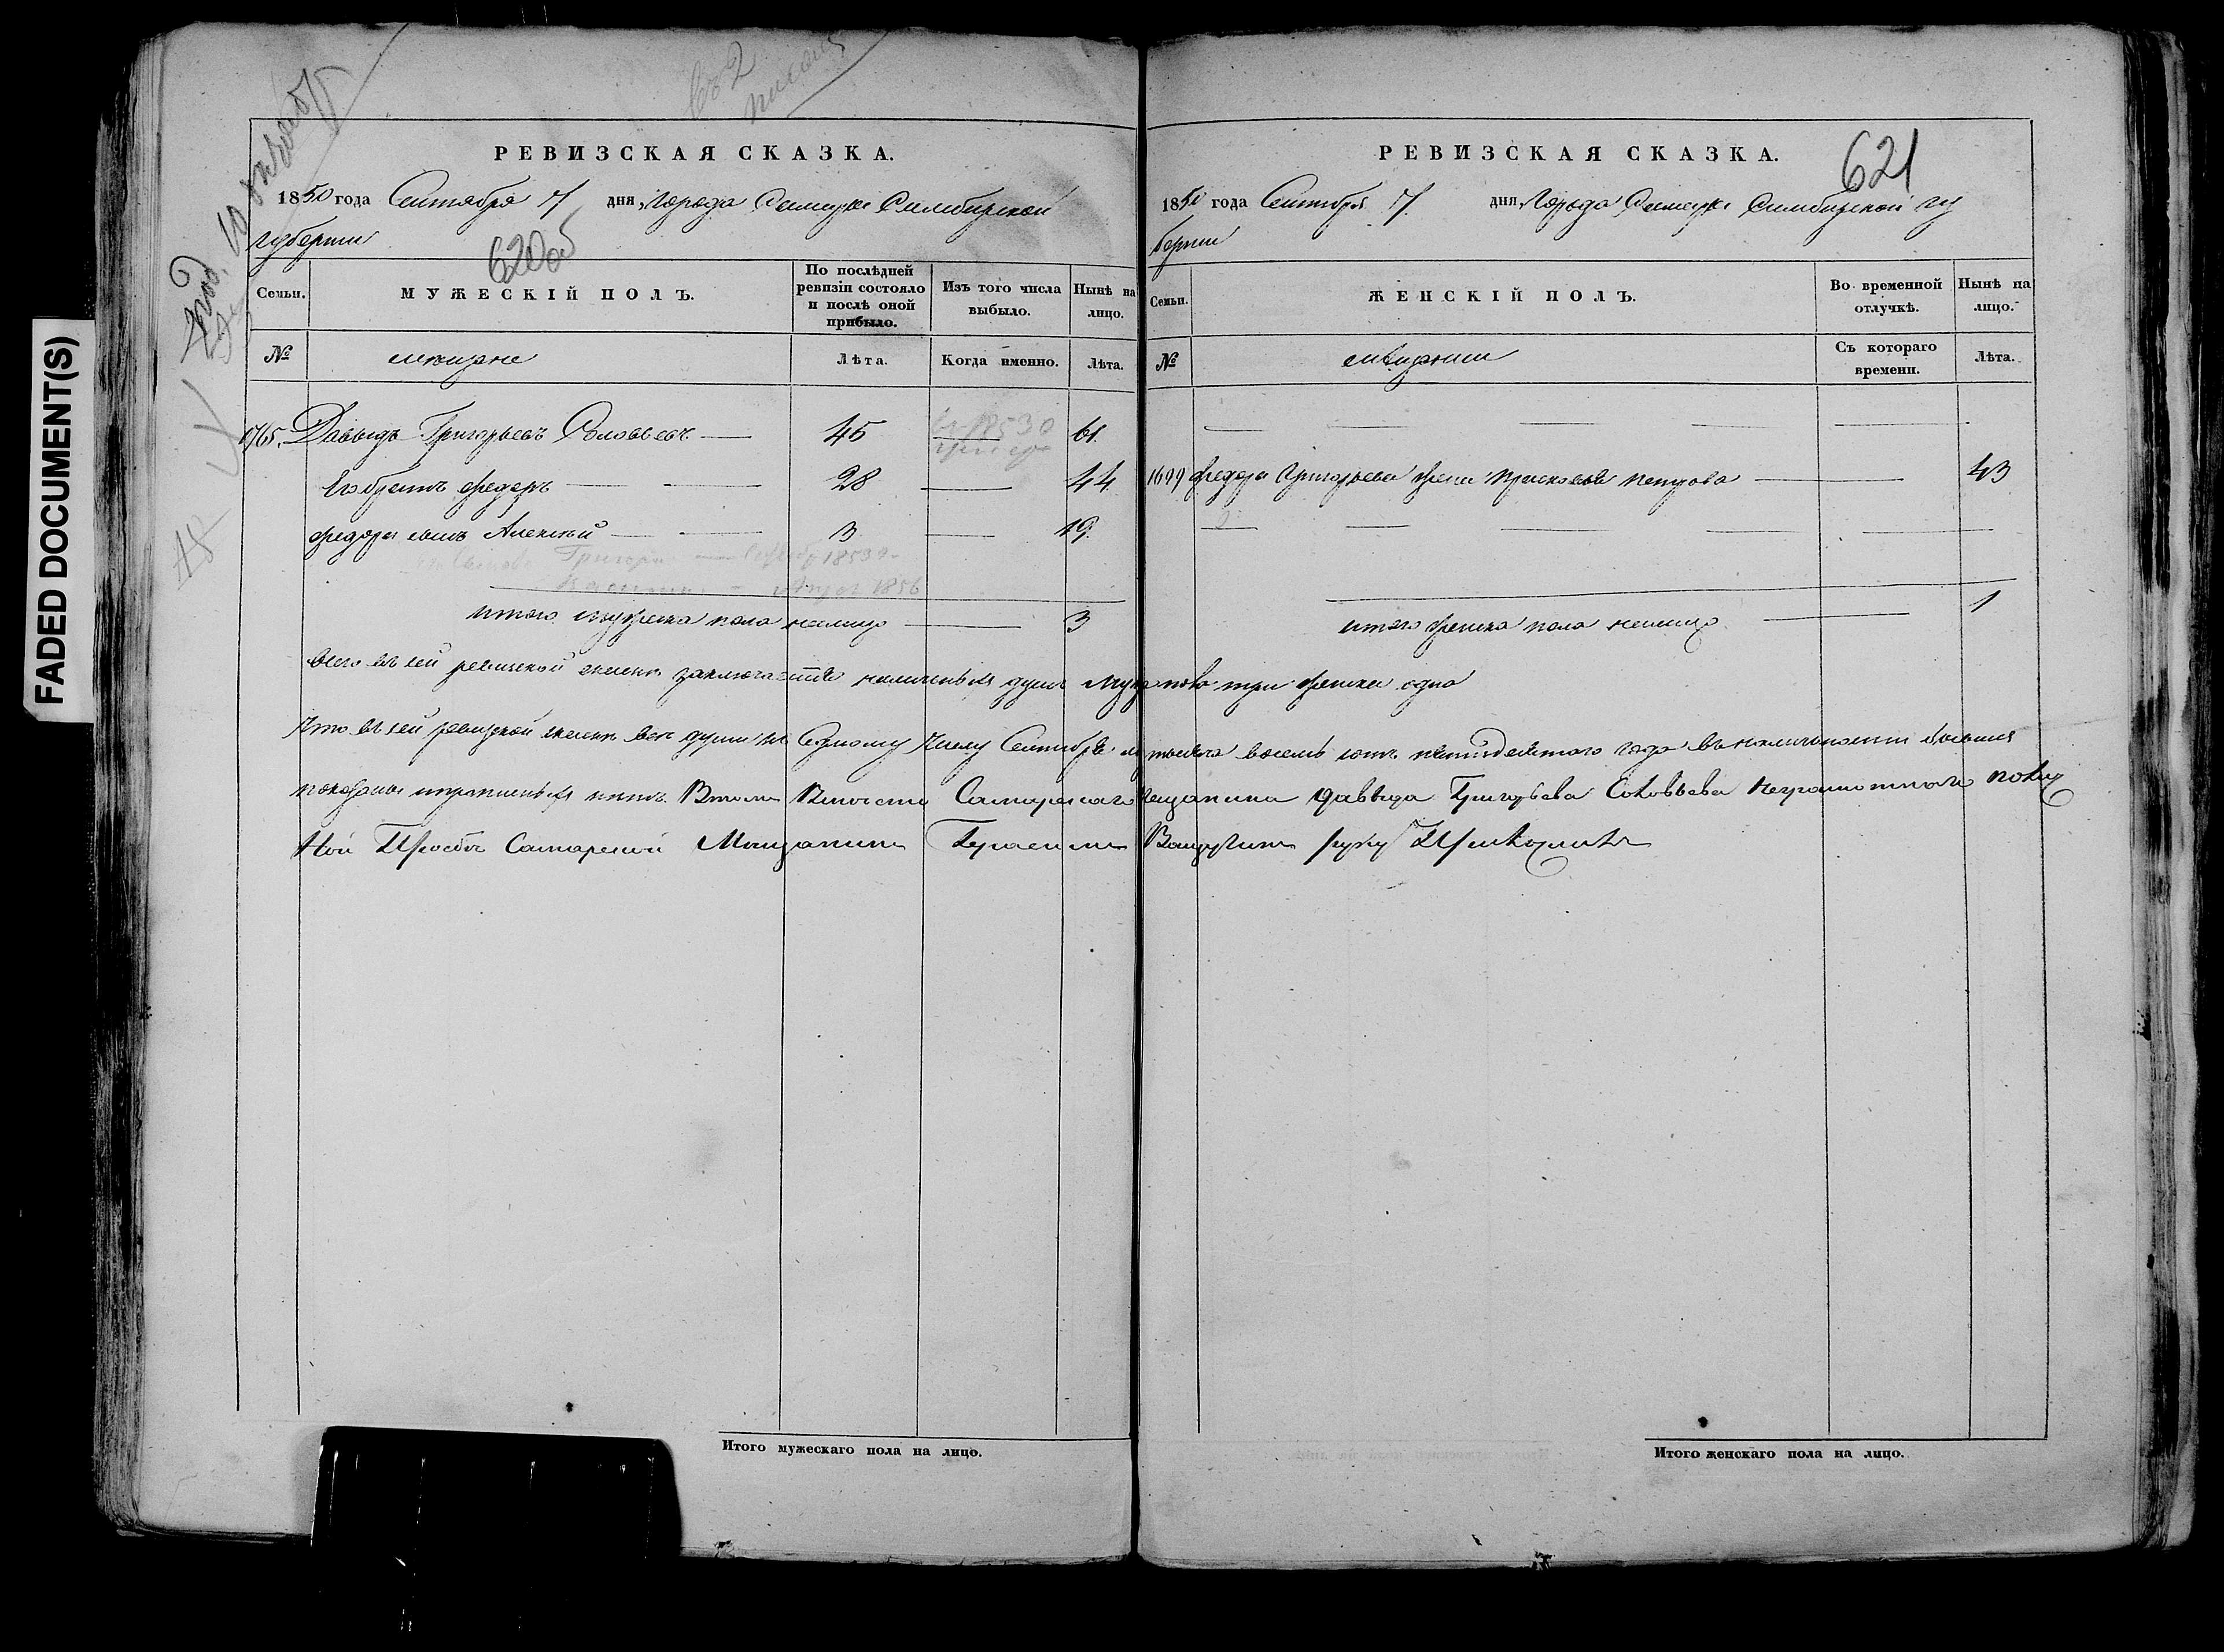 FADED DOCUMENT(S)
РЕВИЗСКАЯ СКАЗКА.
1850 года Сентября 7 дня, Города Самары Симбирской
губернии
620об
Семьи.
МУЖЕСКІЙ ПОЛЪ.
По послѣдней ревизіи состояло и послѣ оной прибыло.
Изъ того числа выбыло.
Нынѣ на лицо.
№
мещане
Лѣта.
Когда именно.
Лѣта.
1765. Давыдъ Григорьевъ Соловьевъ 45 61.
Его братъ Федоръ 28 44
Федора сынъ Алексей 3 19.
Григорий 1853
1856
итого мужеска пола налицо 3
621
РЕВИЗСКАЯ СКАЗКА.
1850 года Сентября 7. дня, Города Самары Симбирской гу
бернии
Семьи.
ЖЕНСКІЙ ПОЛЪ.
Во временной отлучкѣ.
Нынѣ на лицо.
№
мещанки
Съ котораго времени.
Лѣта.
1699 Федора Григорьева жена Прасковья Петрова 43
итого женска пола налицо 1
всего въ сей ревизской сказке заключается наличныхъ душъ мужеска три женска одна
Что въ сей ревизской сказке все души къ седмому числу Сентября тысяча восемь сотъ пятидесятаго года въ наличности бывшия
показаны и прописныхъ нетъ. Втомъ вместо Самарскаго Мещанина Давыда Григорьева Соловьева неграмотнаго полич
ной Прозбе Самарской Мещанинъ Герасимъ руку Приложилъ
Итого мужескаго пола на лицо.
Итого женскаго пола на лицо.